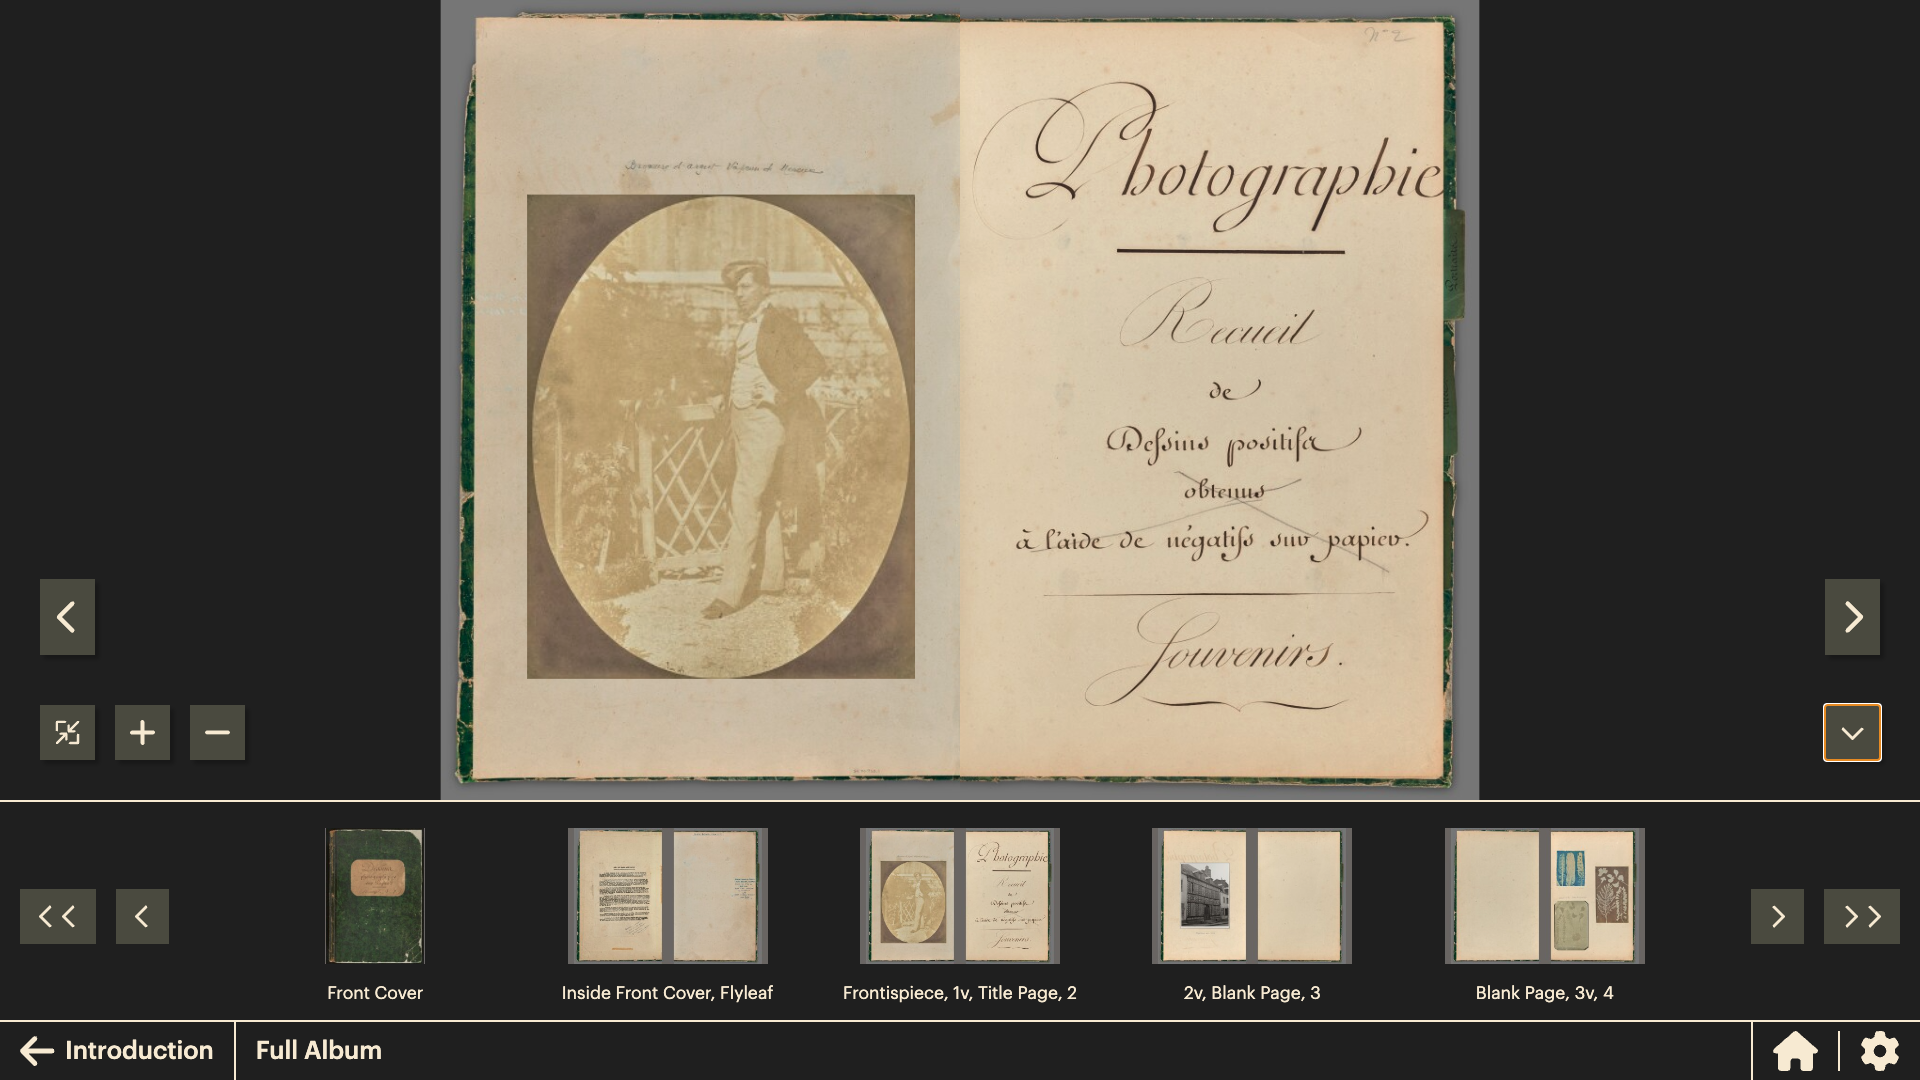 N° 2
Photographie
Recueil
de
Dessins positifs
obtenus
à l'aide de négatifs sur papier.
Souvenirs.
Front Cover
Inside Front Cover, Flyleaf
Frontispiece, 1v, Title Page, 2
2v, Blank Page, 3
Blank Page, 3v, 4
Introduction
Full Album